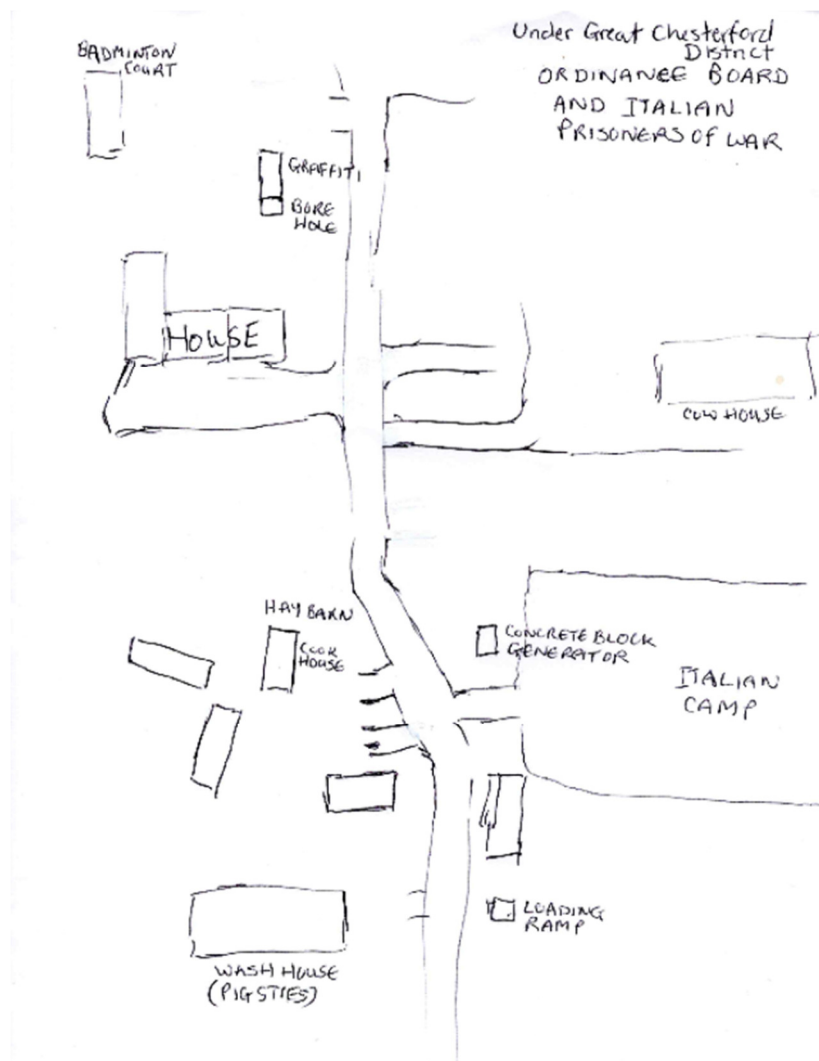 Under Great Chesterford
District
ORDINANCE BOARD
AND ITALIAN
PRISONERS OF WAR
BADMINTON
COURT
GRAFFITI
BORE
HOLE
HOUSE
COW HOUSE
HAY BARN
COOK
HOUSE
CONCRETE BLOCK
GENERATOR
ITALIAN
CAMP
LOADING
RAMP
WASH HOUSE
(PIG STIES)